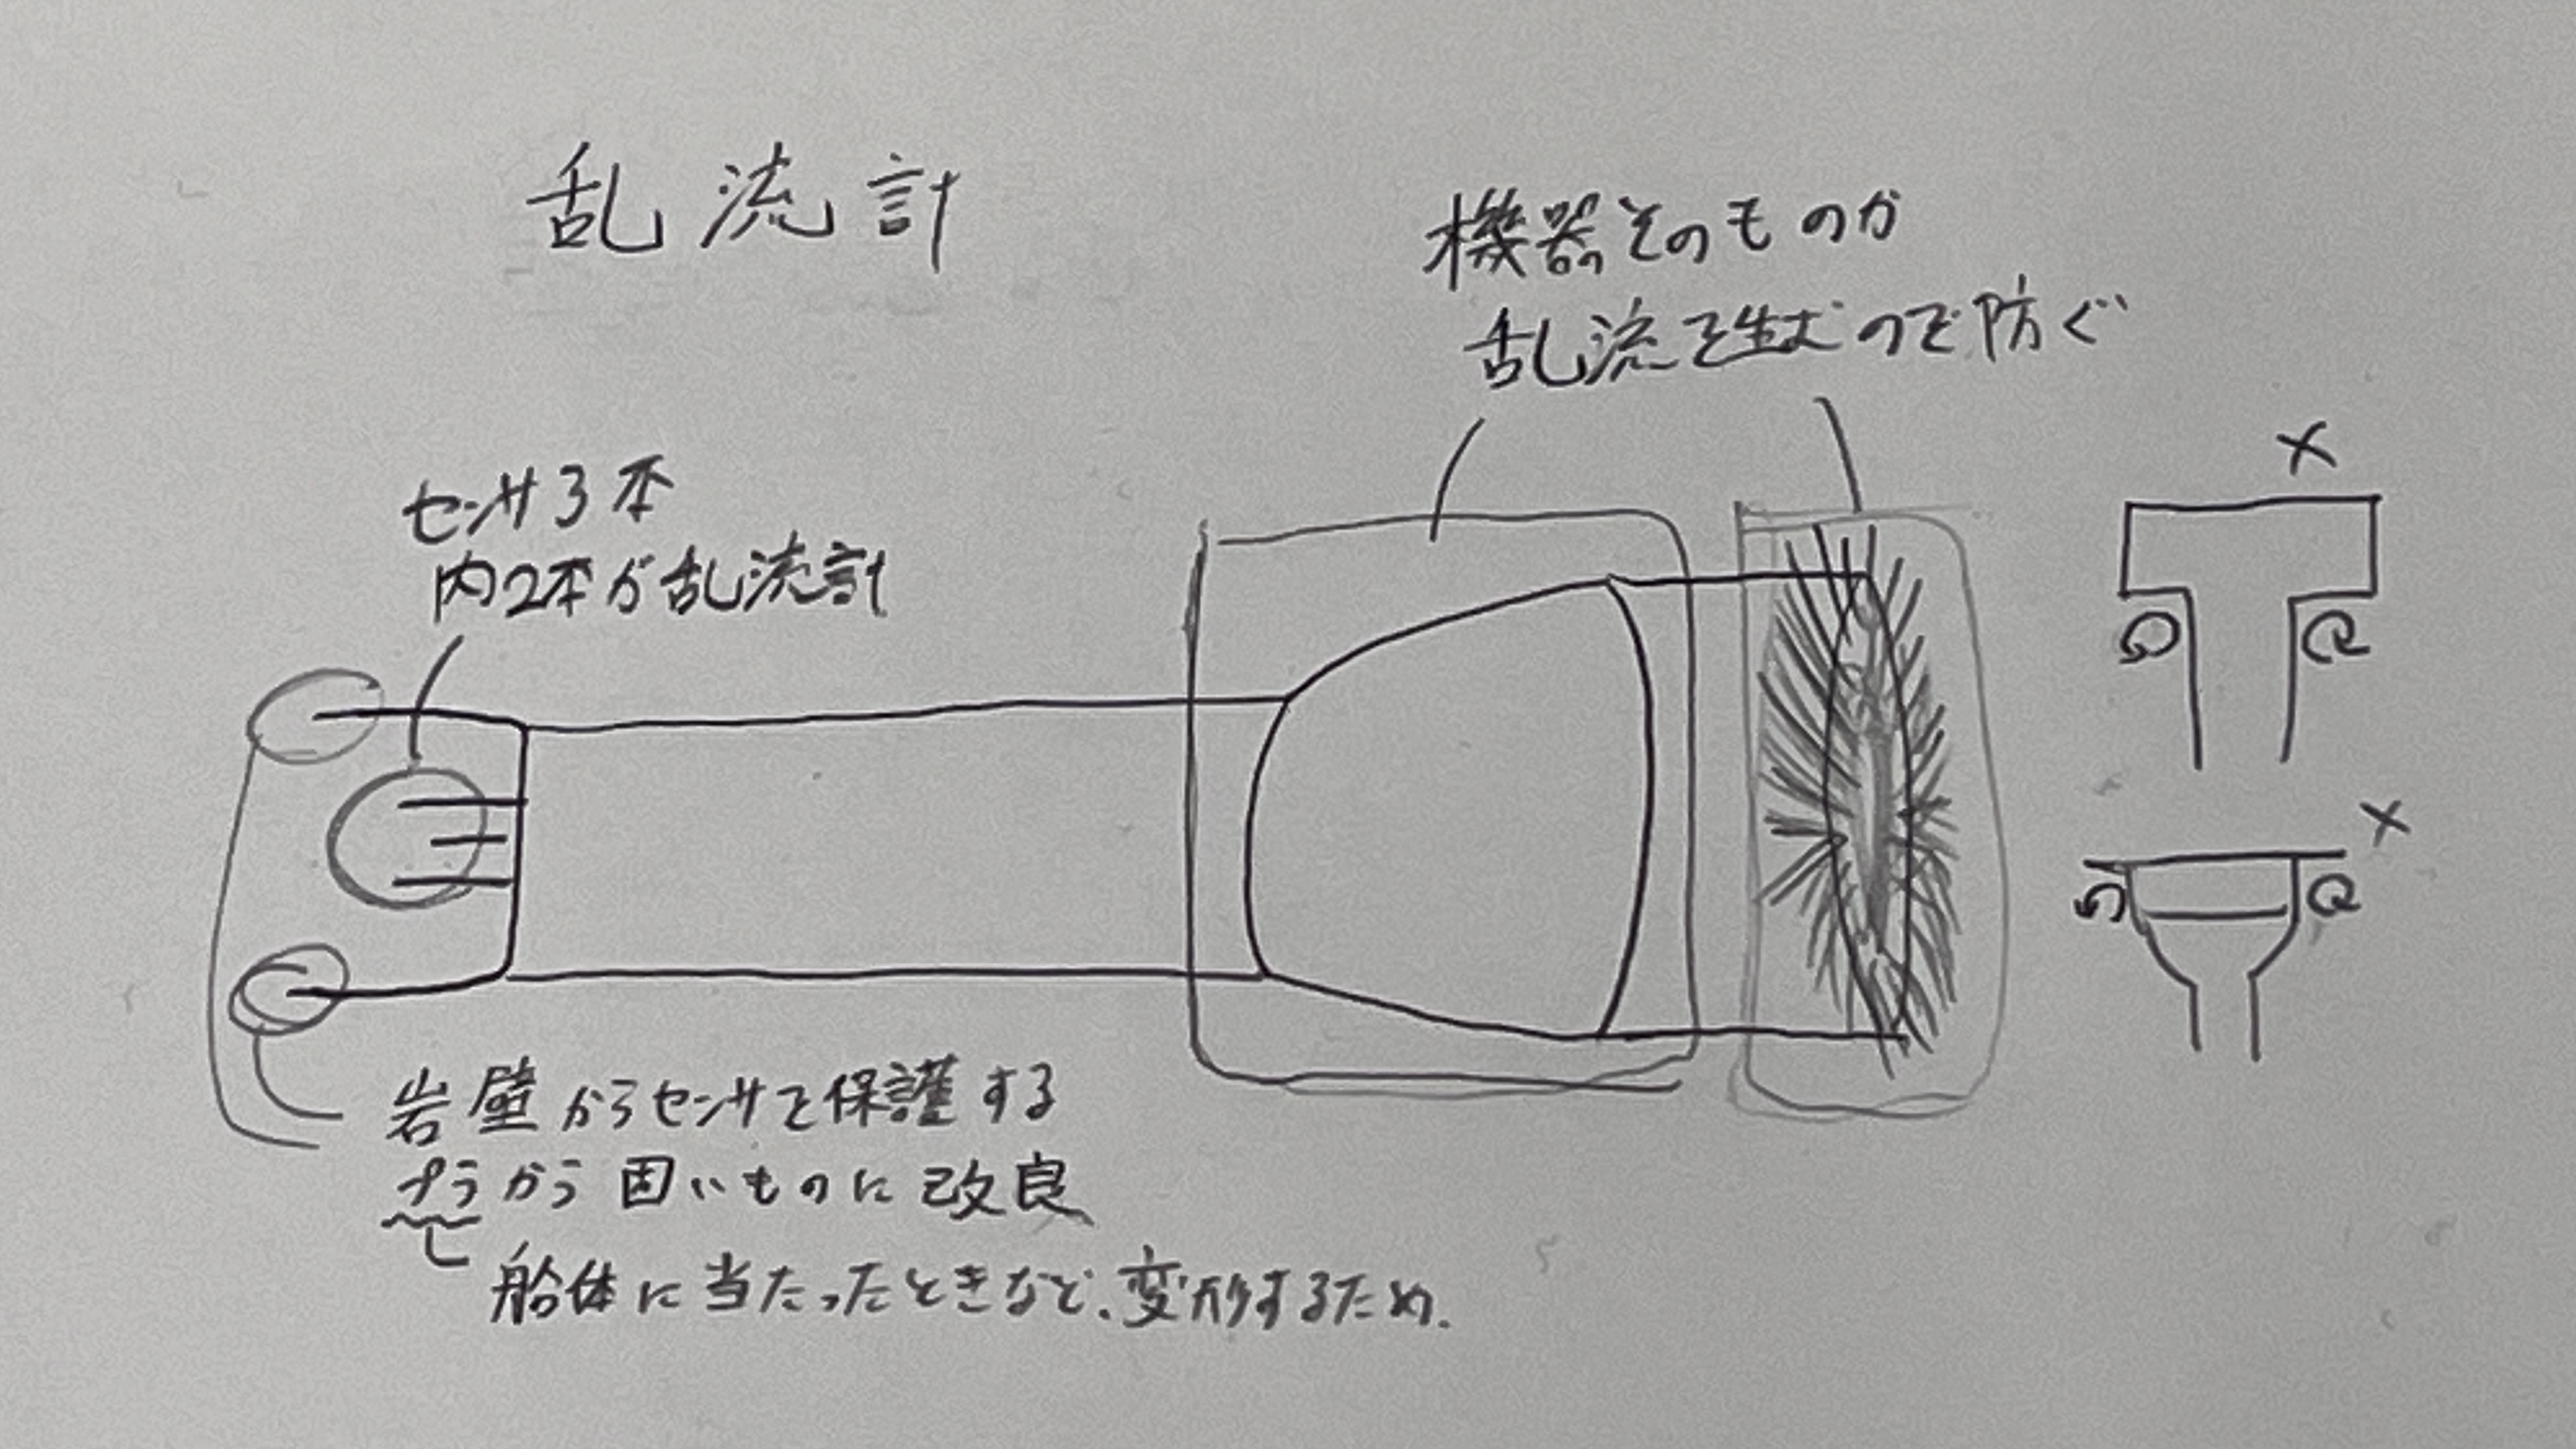 乱流計
機器そのものが
乱流を生むので防ぐ
センサ3本
内2本が乱流計
×
×
岩壁からセンサを保護する
プラから固いものに改良
船体に当たったときなど、変形するため.